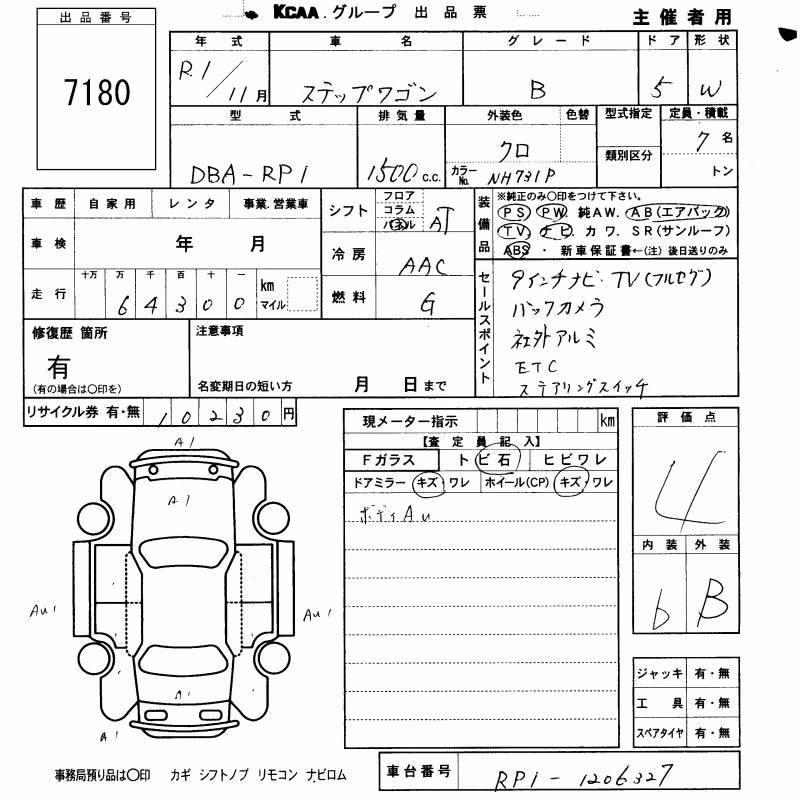 出品番号
7180
KCAA.グループ 出品票
主催者用
年式 車名 グレード ドア 形状
R.1/11月 ステップワゴン B 5 W
型式 排気量 外装色 色替 型式指定 定員・積載
DBA-RP1 1500c.c. クロ 7名
カラーNo. NH731P 類別区分 トン
車歴 自家用 レンタ 事業.営業車
シフト フロア コラム パネル AT
装備品
※純正のみ〇印をつけて下さい。
PS PW 純AW. AB(エアバック)
TV. ナビ. カワ. SR(サンルーフ)
ABS ・ 新車保証書←(注) 後日送りのみ
車検 年 月
冷房 AAC
走行 十万 万 千 百 十 一 km マイル
64300
燃料 G
セールスポイント
9インチナビ・TV(フルセグ)
バックカメラ
社外アルミ
ETC
ステアリングスイッチ
修復歴 箇所
有
(有の場合は〇印を)
注意事項
名変期日の短い方 月 日まで
リサイクル券 有・無 10230円
現メーター指示 km
【査定員記入】
Fガラス トビ石 ヒビワレ
ドアミラー キズ・ワレ ホイール(CP) キズ・ワレ
ボディAu
評価点
4
内装 外装
b B
A1
A1
Au1 Au1
A1
A1
ジャッキ 有・無
工具 有・無
スペアタイヤ 有・無
事務局預り品は〇印 カギ シフトノブ リモコン ナビロム
車台番号 RP1-1206327